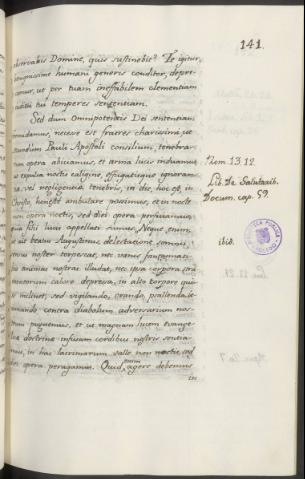 141.
observabis Domine, quis sustinebit? Te igitur,
benignissime humani generis conditor, depre-
camur, ut per tuam ineffabilem clementiam
tui temperes sententiam.
Sed dum Omnipotentis Dei sententiam
necesse est fratres charissimi ut
secundum Pauli Apostoli consilium, tenebra-
rum opera abiiciamus, et arma lucis induamus
expulsa noctis caligine, effugatisque ignoran-
vel negligentiae tenebris, in die, hoc est, in
Christo, honestè ambulare possimus, et ut nocte
non opera noctis, sed diei opera perficiamus,
filii lucis appellati sumus. Neque enim,
ut ait beatus Augustinus delectatione somni,
noster torpescat, nec vanis
animas nostras illudat, nec ipsa corpora
calore depressa, in alto torpore
sed vigilando, orando, psallendo, le-
contra diabolum adversarium nos-
trum pugnemus, et ut magnam lucem evange-
doctrinae infusam cordibus nostris
in hac lacrimarum valle non noctis, sed
diei opera peragamus. Quid enim agere debemus
in
Rom. 13. 12.
Lib. De Salutarib.
Docum. cap. 59.
ibid.
BIBLIOTECA PUBLICA
TOLEDO